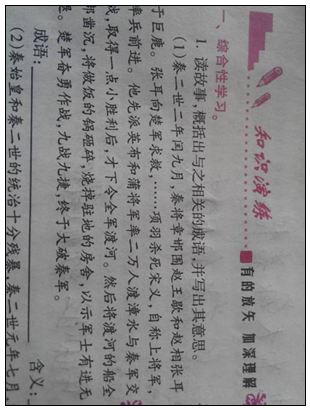 知识演练
有的放矢 加深理解
一、综合性学习。
1. 读故事,概括出与之相关的成语,并写出其意思。
(1)秦二世二年闰九月,秦将章邯围赵王歇和赵相张耳
于巨鹿。张耳向楚军求救,……项羽杀死宋义,自称上将军,
率兵前进。他先派英布和蒲将军率二万人渡漳水与秦军交
战,取得一点小胜利后,才下令全军渡河。然后将渡河的船全
部凿沉,将做饭的锅砸碎,烧掉驻地的房舍,以示军士有进无
退。楚军奋勇作战,九战九捷,终于大破秦军。
成语: 含义:
(2)秦始皇和秦二世的统治十分残暴,秦二世元年七月,